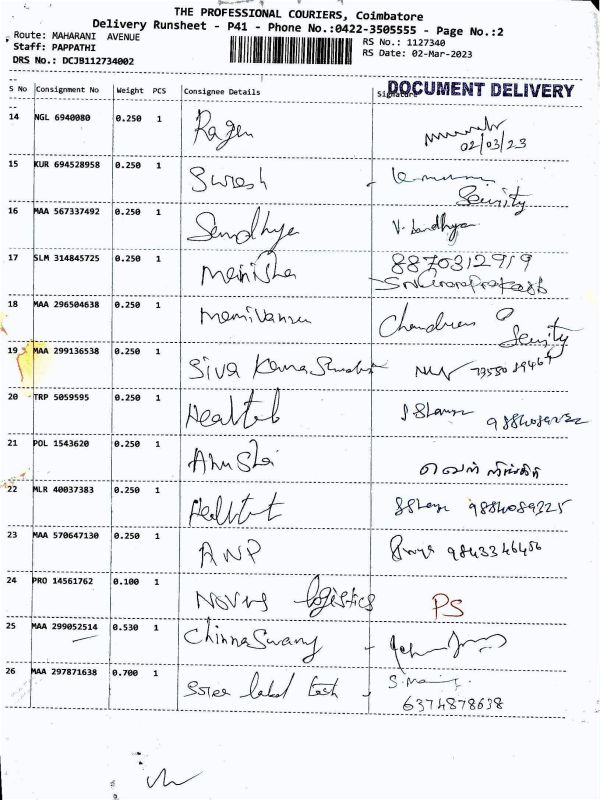 THE PROFESSIONAL COURIERS, Coimbatore
Delivery Runsheet - P41 - Phone No.:0422-3505555 - Page No.:2
Route: MAHARANI AVENUE
Staff: PAPPATHI
DRS No.: DCJB112734002
RS No.: 1127340
RS Date: 02-Mar-2023
DOCUMENT DELIVERY
S No Consignment No Weight PCS Consignee Details Signature
14 NGL 6940080 0.250 1 Ragen
02/03/23
15 KUR 694528958 0.250 1 Suresh
16 MAA 567337492 0.250 1 Sandhya V. Sandhya
17 SLM 314845725 0.250 1 Manisha 8870312919
18 MAA 296504638 0.250 1
19 MAA 299136538 0.250 1 Siva
20 TRP 5059595 0.250 1
21 POL 1543620 0.250 1 Anusha
22 MLR 40037383 0.250 1 9884089225
23 MAA 570647130 0.250 1 ANP 9843346456
24 PRO 14561762 0.100 1 Novus logistics PS
25 MAA 299052514 0.530 1 Chinnaswamy
26 MAA 297871638 0.700 1 label tech S. Mani
6374878638